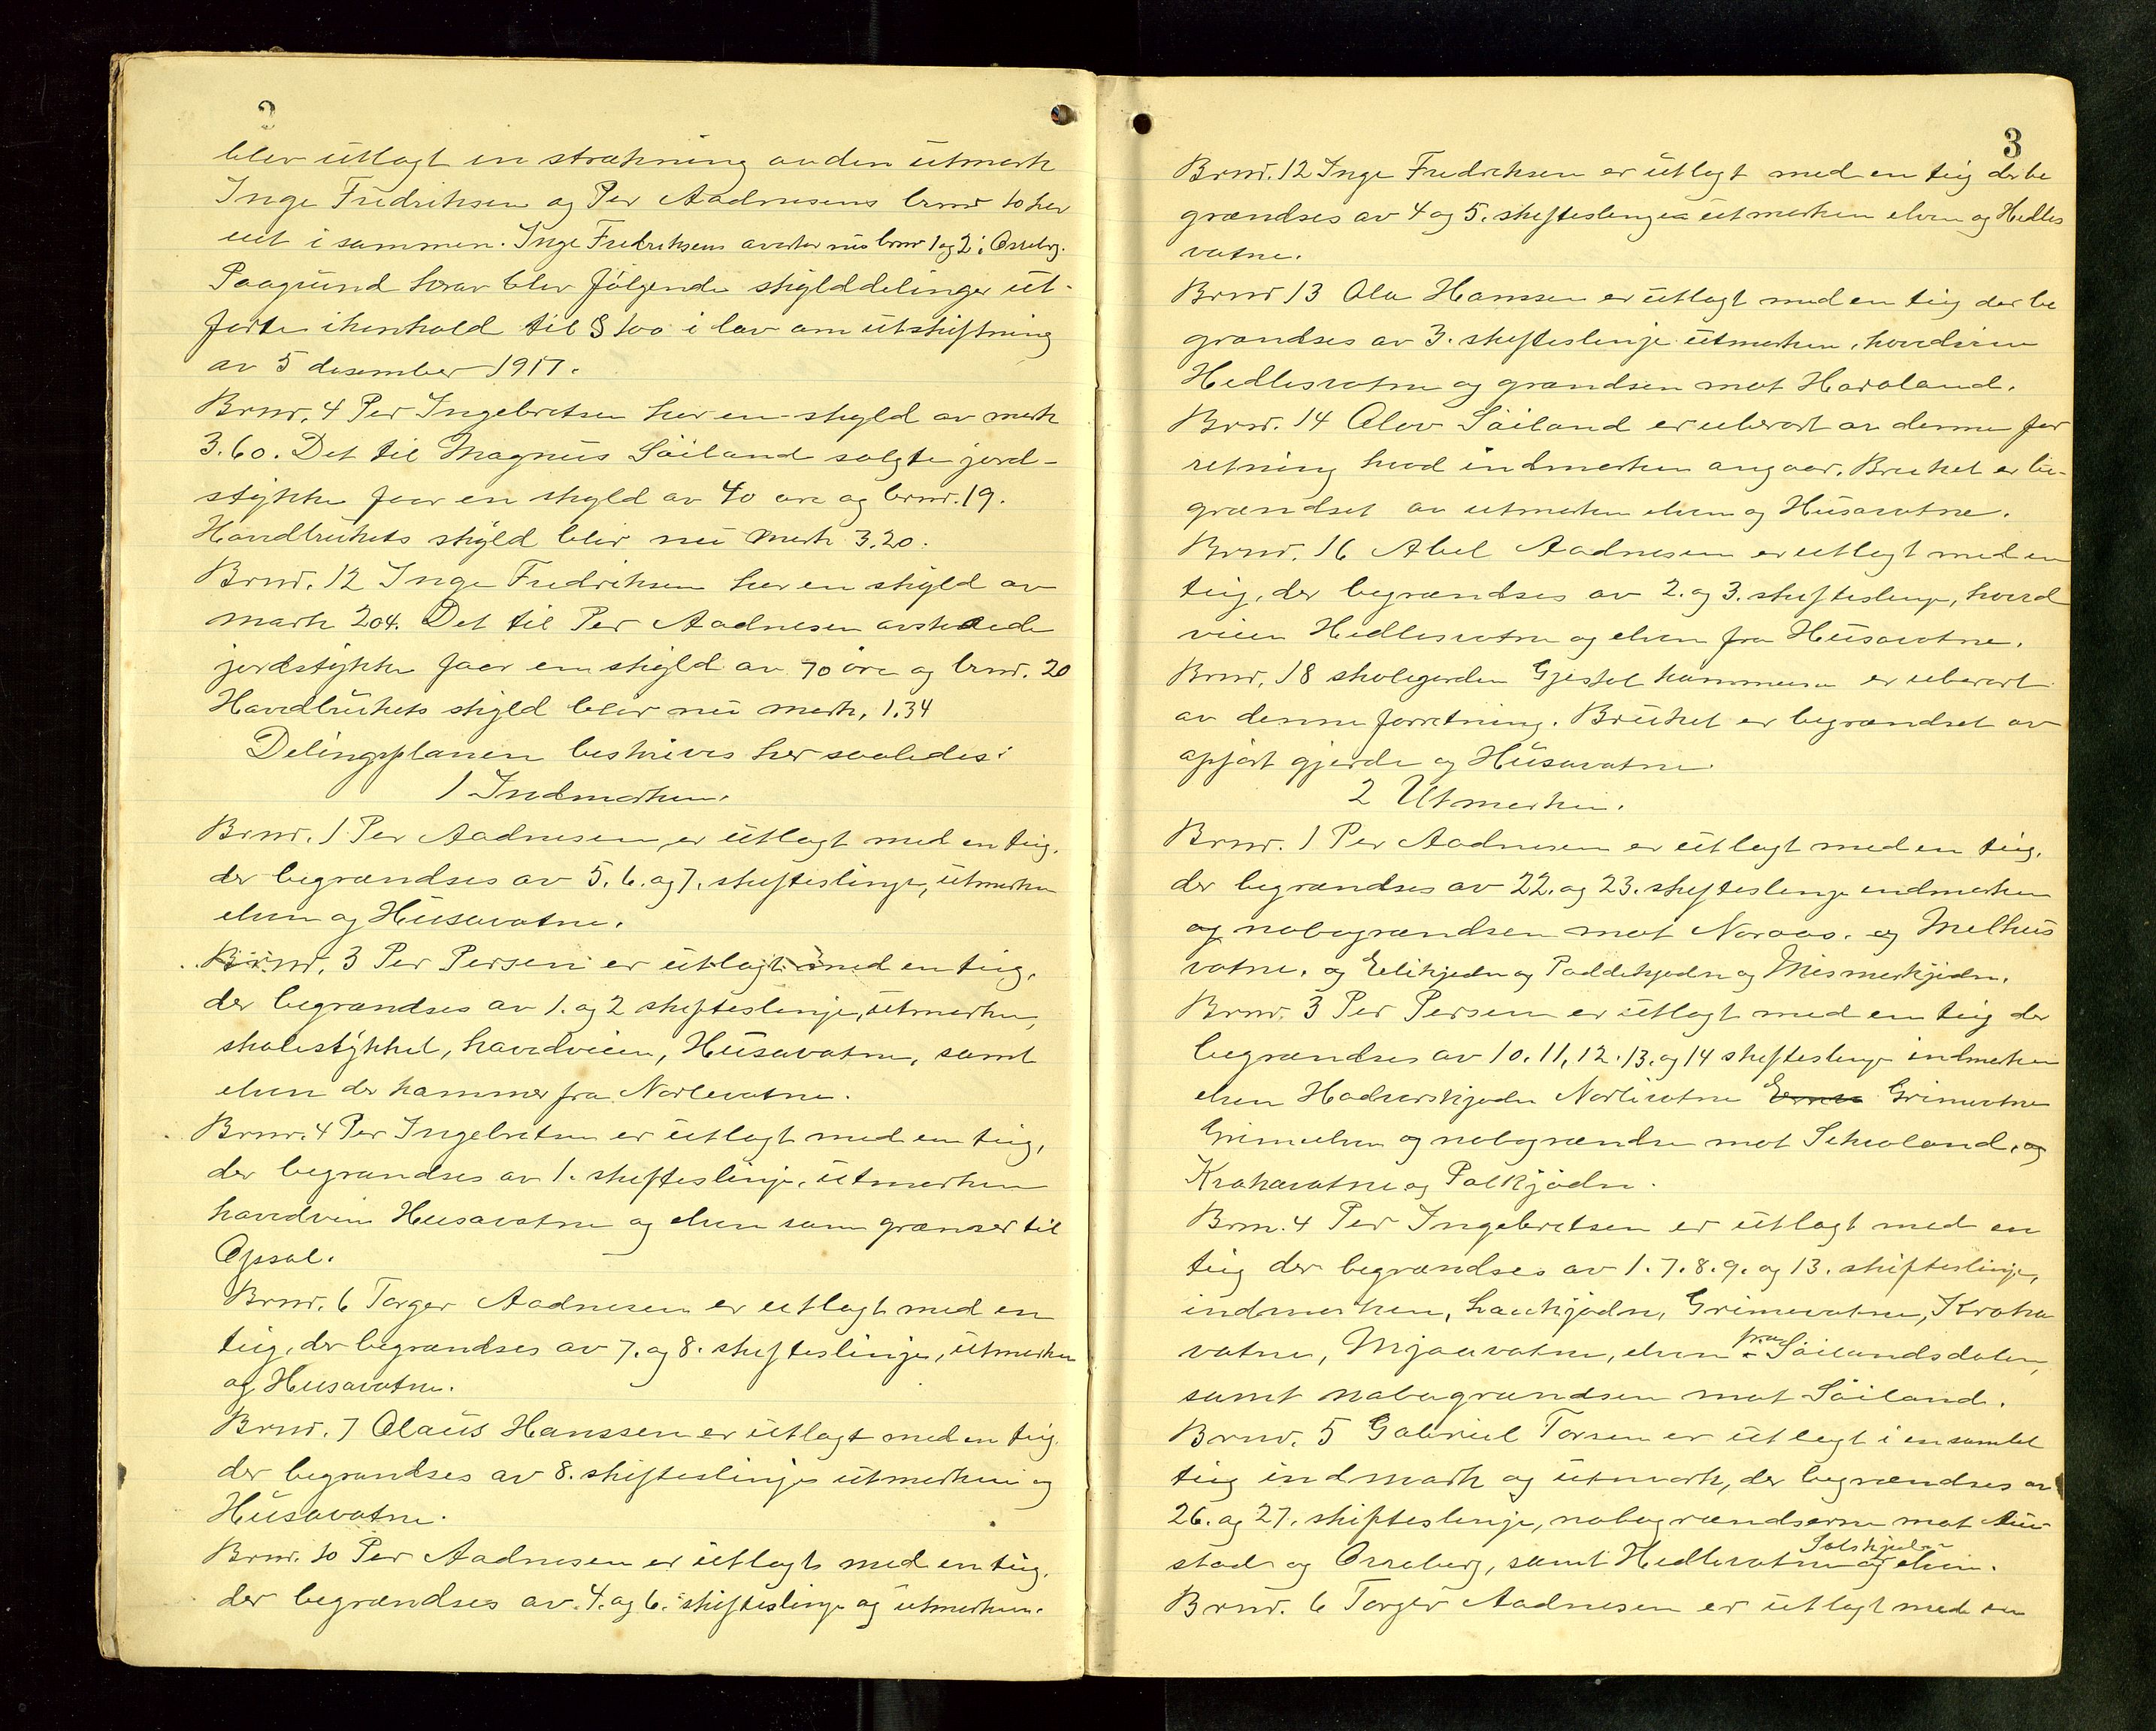 2
blev utlagt en strækning av den utmark
Inge Fredriksen og Per Aadnesens brnr 10 har
ut i sammen. Inge Fredriksens brnr 1 og 2 i Orreberg.
Paagrund herav blev følgende skylddelinger ut-
førte i henhold til § 100 i lov om utskiftning
av 5 desember 1917.
Brnr. 4 Per Ingebretsen har en skyld av mark
3.60. Det til Magnus Söiland solgte jord-
stykke faar en skyld av 40 øre og brnr. 19.
Hovedbrukets skyld blir nu mark 3.20.
Brnr. 12 Inge Fredriksen har en skyld av
mark 204. Det til Per Aadnesen avskaede
jordstykke faar en skyld av 70 öre og brnr. 20
Hovedbrukets skyld blir nu mark. 1.34
Delingsplanen beskrives her saaledes:
1 Indmarken.
Brnr. 1 Per Aadnesen er utlagt med en teig,
der begrændses av 5. 6. og 7. skifteslinje, utmarken
elven og Husavatne.
Brnr. 3 Per Persen er utlagt med en teig,
der begrændses av 1. og 2 skifteslinje, utmarken,
skolestykket, hovedveien, Husavatne, samt
elven der kommer fra Norlevatne.
Brnr. 4 Per Ingebretsen er utlagt med en teig,
der begrændses av 1. skifteslinje, utmarken
hovedvein Husavatne og elven som grænser til
Opsal.
Brnr. 6 Torger Aadnesen er utlagt med en
teig, der begrændses av 7. og 8. skifteslinje, utmarken
og Husavatne.
Brnr. 7 Olaus Hanssen er utlagt med en teig
der begrændses av 8. skifteslinje utmarken og
Husavatne.
Brnr. 10 Per Aadnesen er utlagt med en teig,
der begrændses av 4. og 6. skifteslinje og utmarken.
3
Brnr. 12 Inge Fredriksen er utlagt med en teig der be
grændses av 4 og 5. skifteslinje utmarken elven og Hedles
vatne.
Brnr 13 Ola Hanssen er utlagt med en teig der be
grændses av 3. skifteslinje utmarken, hovedveien
Hedlesvatne og grændsen mot Haraland.
Brnr. 14 Olov Söiland er uberørt av denne for
retning hvad indmarken angaar. Bruket er be-
grændset av utmarken elven og Husavatne.
Brnr. 16 Abel Aadnesen er utlagt med en
teig, der begrændses av 2. og 3. skifteslinje, hoved
veien Hedlesvatne og elven fra Husavatne.
Brnr. 18 skolegarden Gjestel kommune er uberørt
av denne forretning. Bruket er begrændset av
opført gjerde og Husavatne.
2 Utmarken.
Brnr. 1 Per Aadnesen er utlagt med en teig,
der begrændses av 22. og 23. skifteslinje indmarken
og nabogrændsen mot Noraas. og Melhus
vatne. og Eelikjødn og Paddekjødn og Mismerkjødn.
Brnr. 3 Per Persen er utlagt med en teig der
begrændses av 10. 11. 12. 13. og 14 skifteslinje indmarken
elven Hadvarskjødn Norlivatne Grimevatne
Grimeelven og nabogrændsen mot Sikvaland, og
Krakavatne og Palkjödn.
Brnr. 4 Per Ingebretsen er utlagt med en
teig der begrændses av 1. 7. 8. 9. og 13. skifteslinje,
indmarken, Laukjødn, Grimevatne, Kraka
vatne, Mjaavatne, elven fra Söilandsdalen,
samt nabogrændsen mot Söiland.
Brnr. 5 Gabriel Torsen er utlagt i en samlet
teig indmark og utmark, der begrændses av
26. og 27. skifteslinje, nabogrændserne mot Au-
stad og Orreberg, samt Hedlevatne Salskjødn og elven.
Brnr. 6 Torger Aadnesen er utlagt med en